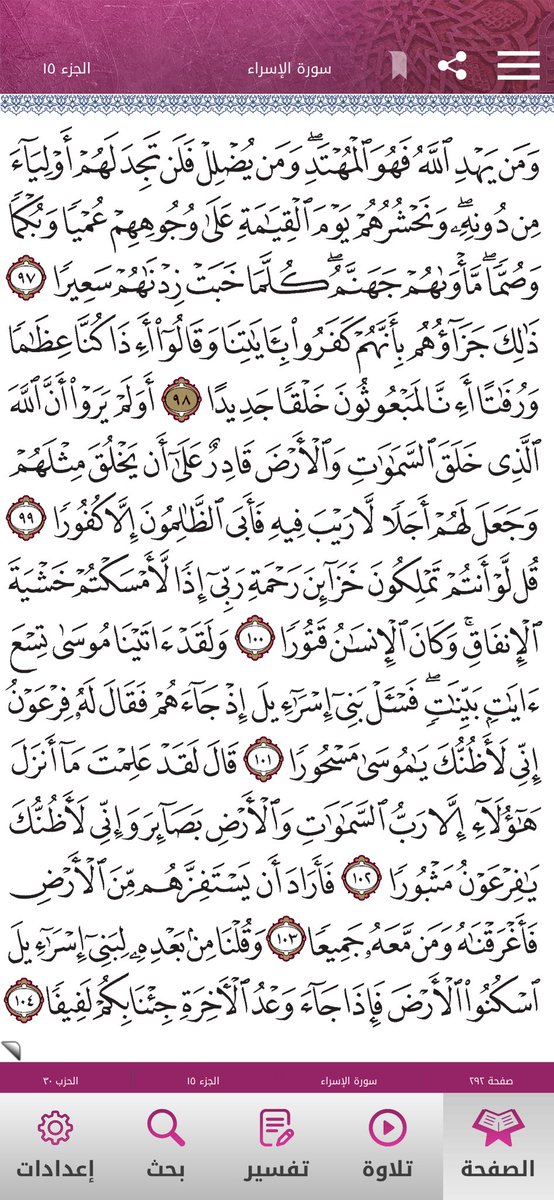 الجزء ١٥ سورة الإسراء
وَمَن يَهْدِ ٱللَّهُ فَهُوَ ٱلْمُهْتَدِۖ وَمَن يُضْلِلْ فَلَن تَجِدَ لَهُمْ أَوْلِيَآءَ
مِن دُونِهِۦۖ وَنَحْشُرُهُمْ يَوْمَ ٱلْقِيَٰمَةِ عَلَىٰ وُجُوهِهِمْ عُمْيًا وَبُكْمًا
وَصُمًّاۖ مَّأْوَىٰهُمْ جَهَنَّمُۖ كُلَّمَا خَبَتْ زِدْنَٰهُمْ سَعِيرًا ٩٧
ذَٰلِكَ جَزَآؤُهُم بِأَنَّهُمْ كَفَرُوا۟ بِـَٔايَٰتِنَا وَقَالُوٓا۟ أَءِذَا كُنَّا عِظَٰمًا
وَرُفَٰتًا أَءِنَّا لَمَبْعُوثُونَ خَلْقًا جَدِيدًا ٩٨ أَوَلَمْ يَرَوْا۟ أَنَّ ٱللَّهَ
ٱلَّذِى خَلَقَ ٱلسَّمَٰوَٰتِ وَٱلْأَرْضَ قَادِرٌ عَلَىٰٓ أَن يَخْلُقَ مِثْلَهُمْ
وَجَعَلَ لَهُمْ أَجَلًا لَّا رَيْبَ فِيهِ فَأَبَى ٱلظَّٰلِمُونَ إِلَّا كُفُورًا ٩٩
قُل لَّوْ أَنتُمْ تَمْلِكُونَ خَزَآئِنَ رَحْمَةِ رَبِّىٓ إِذًا لَّأَمْسَكْتُمْ خَشْيَةَ
ٱلْإِنفَاقِۚ وَكَانَ ٱلْإِنسَٰنُ قَتُورًا ١٠٠ وَلَقَدْ ءَاتَيْنَا مُوسَىٰ تِسْعَ
ءَايَٰتٍۭ بَيِّنَٰتٍۖ فَسْـَٔلْ بَنِىٓ إِسْرَٰٓءِيلَ إِذْ جَآءَهُمْ فَقَالَ لَهُۥ فِرْعَوْنُ
إِنِّى لَأَظُنُّكَ يَٰمُوسَىٰ مَسْحُورًا ١٠١ قَالَ لَقَدْ عَلِمْتَ مَآ أَنزَلَ
هَٰٓؤُلَآءِ إِلَّا رَبُّ ٱلسَّمَٰوَٰتِ وَٱلْأَرْضِ بَصَآئِرَ وَإِنِّى لَأَظُنُّكَ
يَٰفِرْعَوْنُ مَثْبُورًا ١٠٢ فَأَرَادَ أَن يَسْتَفِزَّهُم مِّنَ ٱلْأَرْضِ
فَأَغْرَقْنَٰهُ وَمَن مَّعَهُۥ جَمِيعًا ١٠٣ وَقُلْنَا مِنۢ بَعْدِهِۦ لِبَنِىٓ إِسْرَٰٓءِيلَ
ٱسْكُنُوا۟ ٱلْأَرْضَ فَإِذَا جَآءَ وَعْدُ ٱلْءَاخِرَةِ جِئْنَا بِكُمْ لَفِيفًا ١٠٤
صفحة ٢٩٢ سورة الإسراء الجزء ١٥ الحزب ٣٠
الصفحة تلاوة تفسير بحث إعدادات